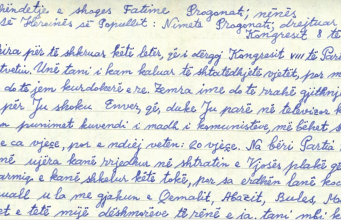 shëndetje e shoqes Fatime Progonat; nënës
së Heroinës së Popullit: Nimete Progonati, drejtuar
Kongresit 8 të
për të shkruar këtë letër, që i dërgoj Kongresit VIII të Par
Unë tani i kam kaluar të shtatëdhjetë vjetët, por m
do të jem kurdoherë e re. Zemra ime do të rrahë gjithnj
për Ju shoku Enver, që, duke Ju parë në televizor k
punimet kuvendi i madh i komunistëve, më bëhet s
ca vjeçe, por e ndjej veten: 20 vjeçe. Na bëri Partia
më ujëra kanë rrjedhur në shtratin e Vjosës plakë
armiq e kanë shkelur këtë tokë, por sa erdhën lanë koc
u la me gjakun e Qemalit, Abazit, Bules, Mo
e tetë mijë dëshmorëve të rënë e sa, tani mbi k